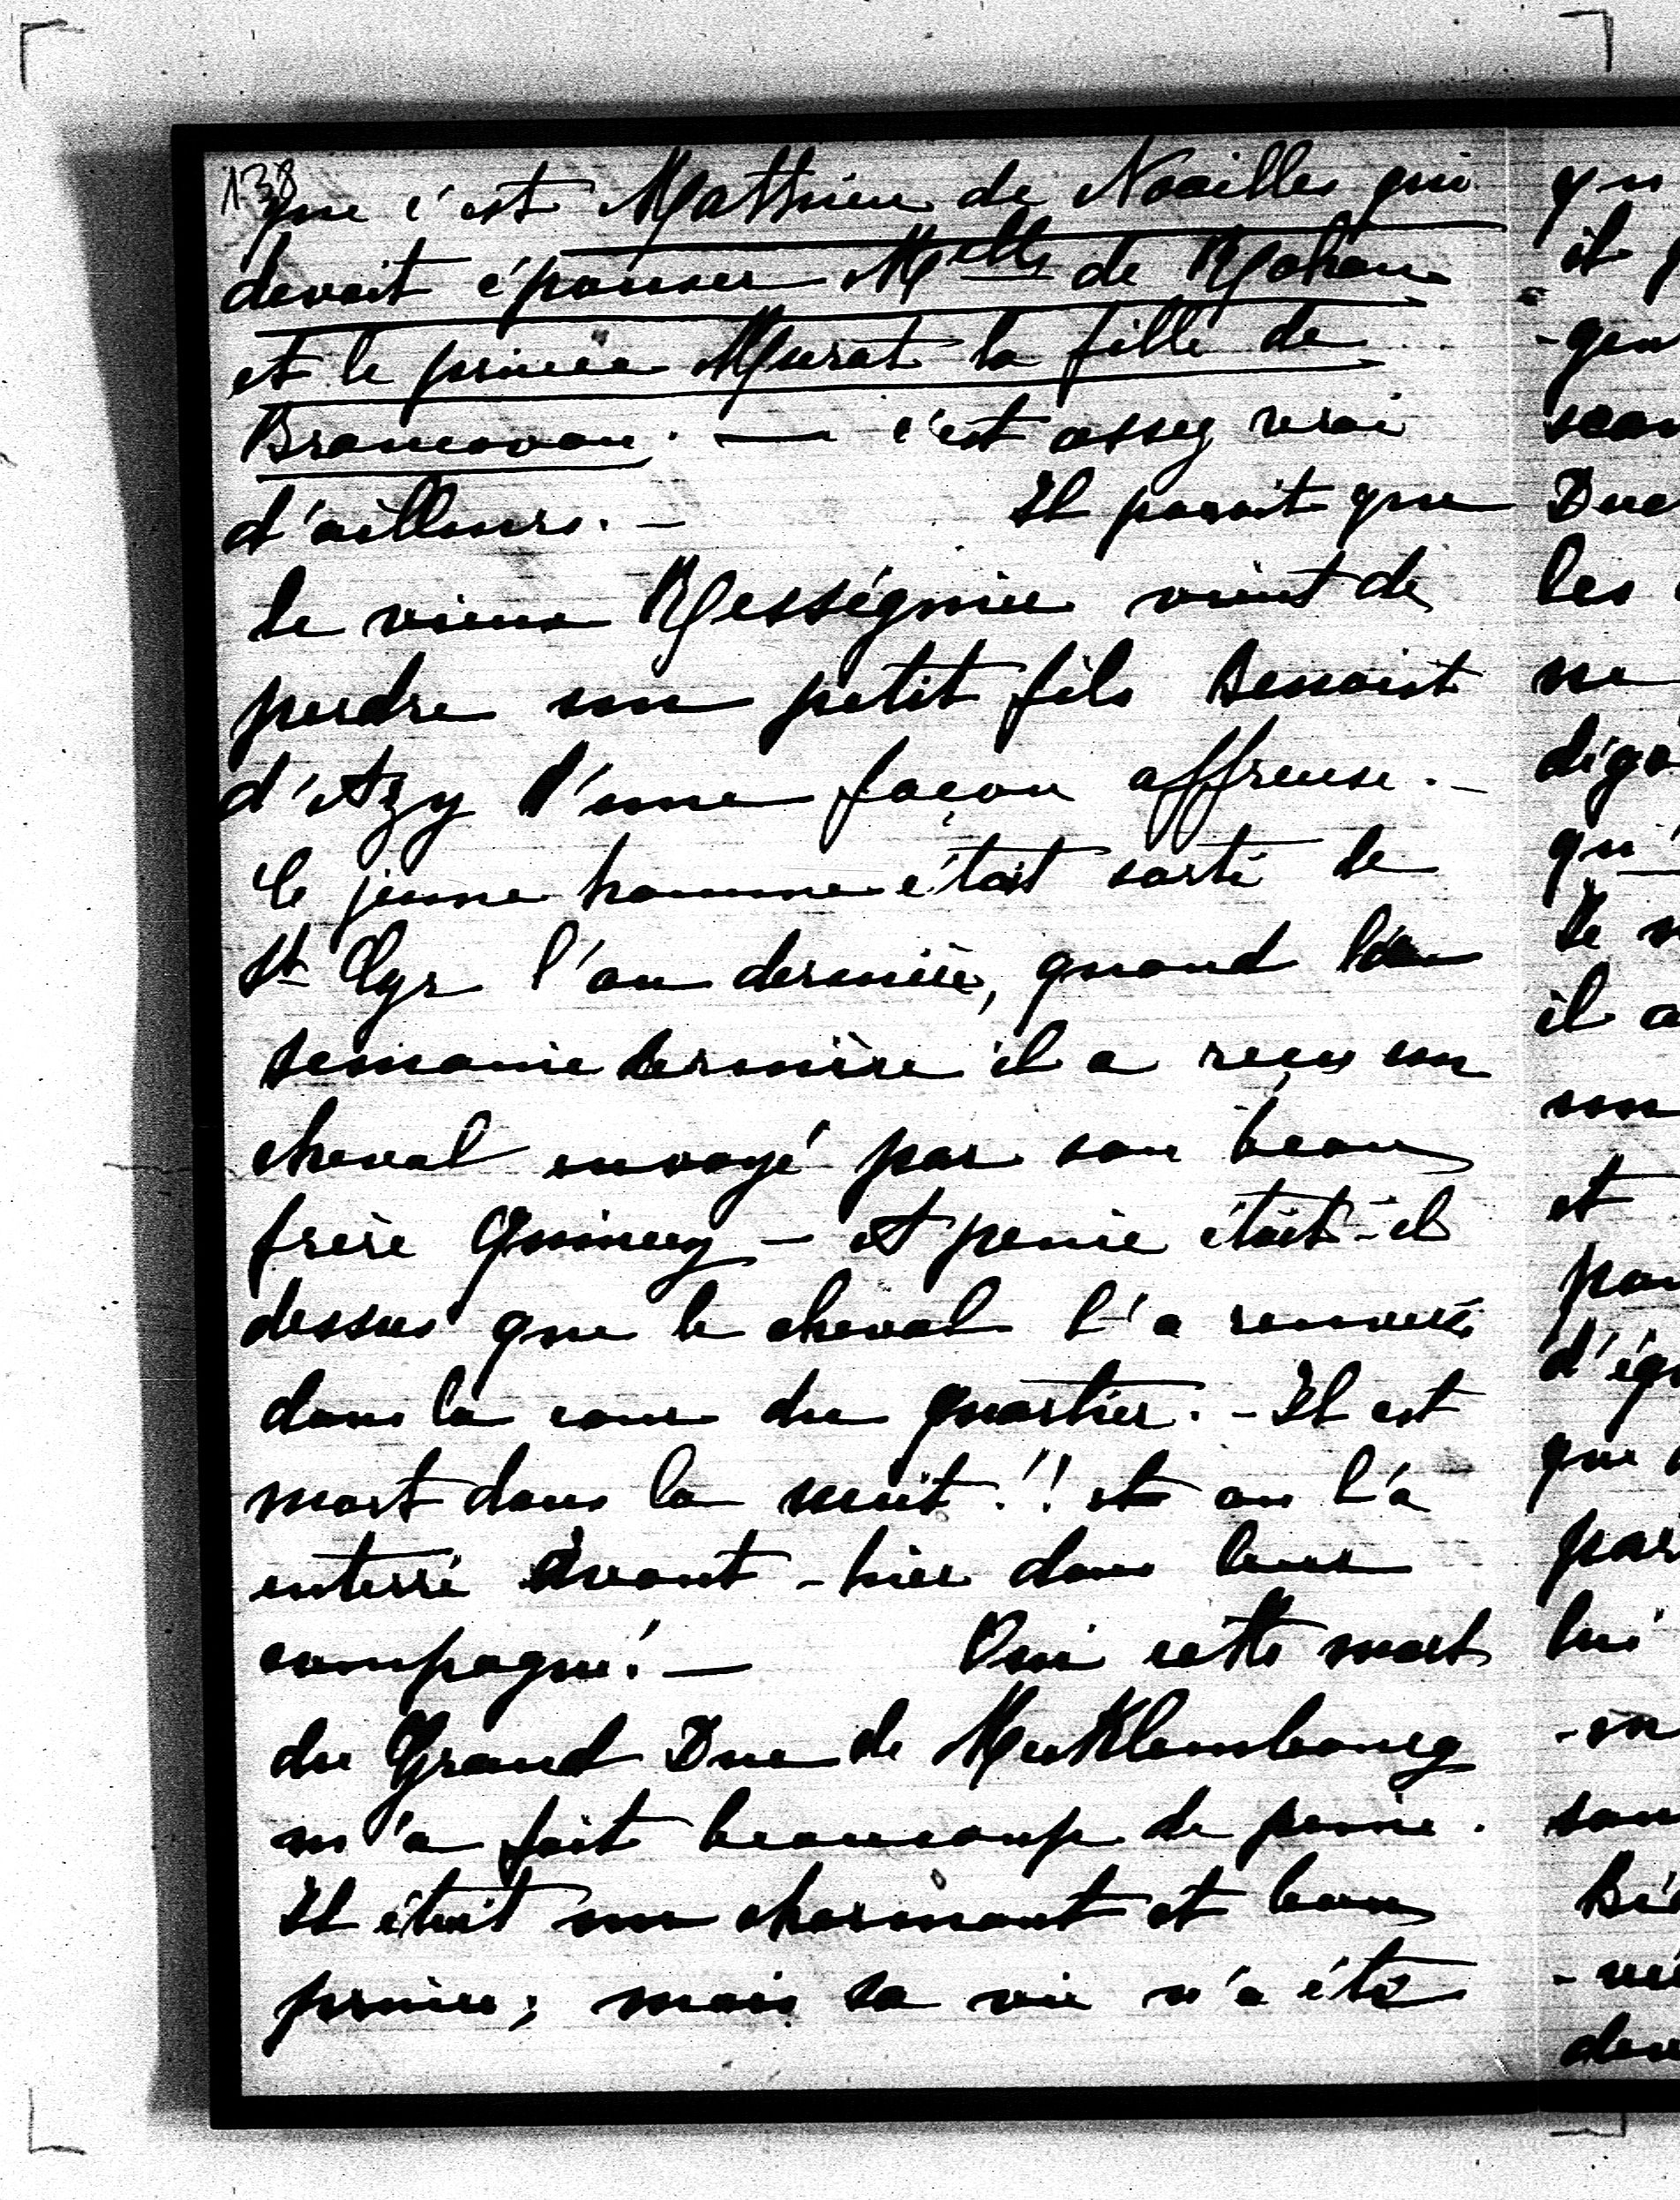 138
que c'est Mathieu de Noailles qui
devait épouser Melle de Rohan
et le prince Murat la fille de
Brancovan. — c'est assez vrai
d'ailleurs. — Il parait que
le vieux Rességuier vient de
perdre son petit fils Benoist
d'Azy d'une façon affreuse. -
Ce jeune homme était sorti de
St Cyr l'an dernière, quand la
semaine dernière il a reçu un
cheval envoyé par son beau
frère Quincey - A peine était-il
dessus que le cheval l'a renversé
dans la cour du quartier. - Il est
mort dans la nuit !! et on l'a
enterré avant-hier dans leur
campagne! — Oui cette mort
du Grand Duc de Mecklembourg
m'a fait beaucoup de peine.
Il était un charmant et bon
prince; mais sa vie n'a été
qu
il
-gen
Duc
les
ne
qu'
il a
et
pou
que
par
lui